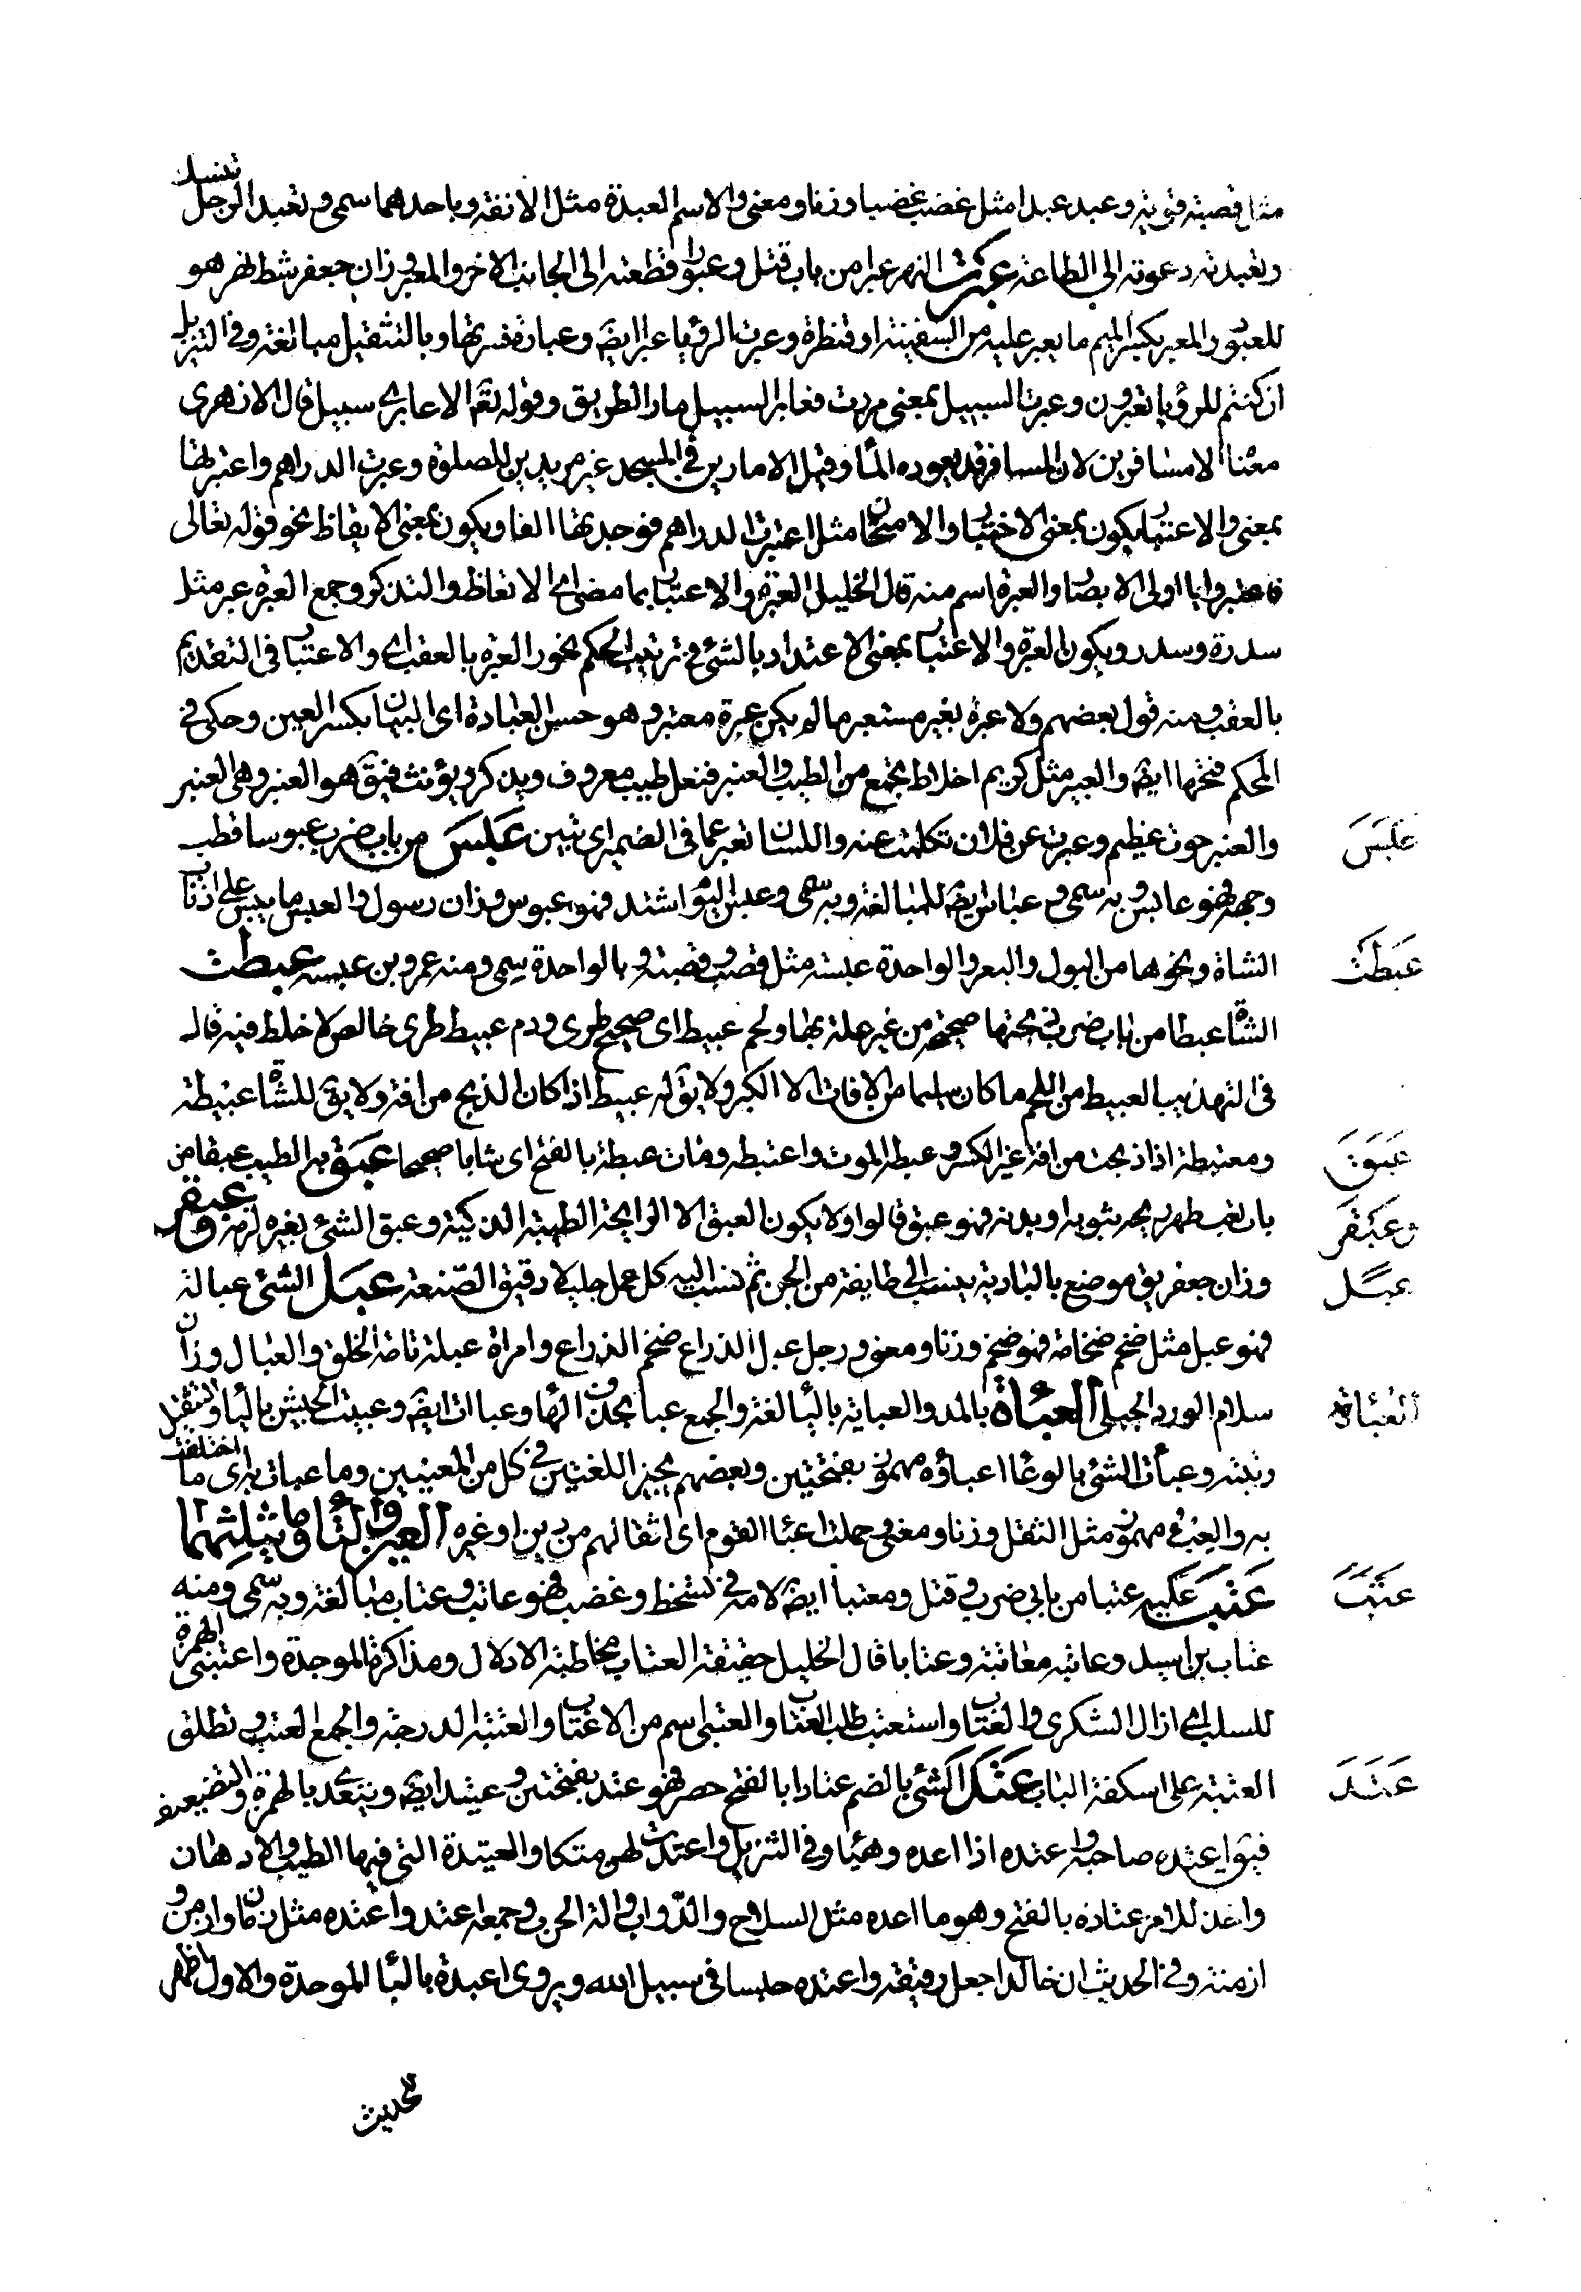 مثل قصبة قوية وعبد عبدا مثل غضب غضبا وزنا ومعنى والاسم العبدة مثل الانفة وباحدهما سمى وتعبد الرجل تنسك
وتعبدته دعوته الى الطاعة عبرت النهر عبرا من باب قتل وعبورا قطعته الى الجانب الاخر والمعبر وزان جعفر شط نهر هو
للعبور والمعبر بكسر الميم ما يعبر عليه من السفينة او قنطرة وعبرت الرؤيا عبرا ايضا وعبارة فسرتها وبالتثقيل مبالغة وفى التنزيل
ان كنتم للرؤيا تعبرون وعبرت السبيل بمعنى مررت فعابر السبيل مار الطريق وقوله تعا الا عابرى سبيل قال الازهرى
معناه الا مسافرين لان المسافر قد يعوزه الماء وقيل الا مارين فى المسجد غير مريدين للصلوة وعبرت الدراهم واعتبرتها
بمعنى والاعتبار يكون بمعنى الاختبار والامتحان مثل اعتبرت الدراهم فوجدتها الفا ويكون بمعنى الايقاظ نحو قوله تعالى
فاعتبروا يا اولى الابصار والعبرة اسم منه قال الخليل العبرة والاعتبار بما مضى اى الاتعاظ والتذكر وجمع العبرة عبر مثل
سدرة وسدر ويكون العبرة والاعتبار بمعنى الاعتداد بالشئ فى ترتيب الحكم نحو والعبرة بالعقب اى والاعتبار فى التقديم
بالعقب ومنه قول بعضهم ولا عبرة بعبرة مستعبر ما لم يكن عبرة معتبر وهو حسن العبارة اى البيان بكسر العين وحكى فى
المحكم فتحها ايضا والعبير مثل كريم اخلاط تجمع من الطيب والعنبر فنعل طيب معروف ويذكر ويؤنث فيقال هو العنبر وهى العنبر
والعنبر حوت عظيم وعبرت عن فلان تكلمت عنه واللسان تعبر عما فى الضمير اى تبين عبس من باب ضرب عبوسا قطب
عبس
وجهه فهو عابس وبه سمى وعباس ايضا للمبالغة وبه سمى وعبس اليوم اشتد فهو عبوس وزان رسول والعبس ما يبس على اذناب
الشاة ونحوها من البول والبعر والواحدة عبسة مثل قصب وقصبة وبالواحدة سمى ومنه عمرو بن عبسة عبطت
عبطت
الشاة عبطا من باب ضرب ذبحتها صحيحة من غير علة بها ولحم عبيط اى صحيح طرى ودم عبيط طرى خالص لا خلط فيه قال
فى التهذيب العبيط من اللحم ما كان سليما من الافات الا الكسر ولا يقال له عبيط اذا كان الذبح من افة ولا يقال للشاة عبيطة
ومعتبطة اذا ذبحت من افة غير الكسر وعبطه الموت واعتبطه ومات عبطة بالفتح اى شابا صحيحا عبق به الطيب عبقا من
عبق
باب تعب ظهر ريحه بثوبه او بدنه فهو عبق قالوا ولا يكون العبق الا الرايحة الطيبة الذكية وعبق الشئ بغيره لزمه وعبقر
وعبقر
وزان جعفر يقال موضع بالبادية ينسب الى طايفة من الجن ثم نسب اليه كل عمل جليل دقيق الصنعة عبل الشئ عبالة
عبل
فهو عبل مثل ضخم ضخامة فهو ضخم وزنا ومعنى ورجل عبل الذراع ضخم الذراع وامراة عبلة تامة الخلق والعبال وزان
سلام الورد الجبلى العباءة بالمد والعباية بالياء لغة والجمع عباء بحذف الهاء وعباات ايضا وعبيت الجيش بالياء والتثقيل
العباءة
رتبته وعبأت الشئ بالوعاء اعباؤه مهموز بفتحتين وبعضهم يجيز اللغتين فى كل من المعنيين وما عبات به اى ما احتفلت
به والعبء مهموز مثل الثقل وزنا ومعنى وحملت اعباء القوم اى اثقالهم من دين او غيره العين والتاء وما يثلثهما
عتب عليه عتبا من بابى ضرب وقتل ومعتبا ايضا لامه فى تسخط وغضب فهو عاتب وعتاب مبالغة وبه سمى ومنه
عتب
عتاب بن اسيد وعاتبه معاتبة وعتابا قال الخليل حقيقة العتاب مخاطبة الادلال ومذاكرة الموجدة واعتبنى الهمزة
للسلب اى ازال الشكوى والعتاب واستعتب طلب العتاب والعتبى اسم من الاعتاب والعتبة الدرجة والجمع العتب وتطلق
العتبة على اسكفة الباب عتد الشئ بالضم عتادا بالفتح حضر فهو عتد بفتحتين وعتيد ايضا ويتعدى بالهمزة والتضعيف
عتد
فيقال اعتده صاحبه وعتده اذا اعده وهيأه وفى التنزيل واعتدت لهن متكا والعتيدة التى فيها الطيب والادهان
واخذ للامر عتاده بالفتح وهو ما اعده مثل السلاح والدواب والة الحرب وجمعه عتد واعتده مثل زمان وازمن و
ازمنة وفى الحديث ان خالدا جعل رقيقه واعتده حبسا فى سبيل الله ويروى اعبده بالباء الموحدة والاول اظهر
لحديث